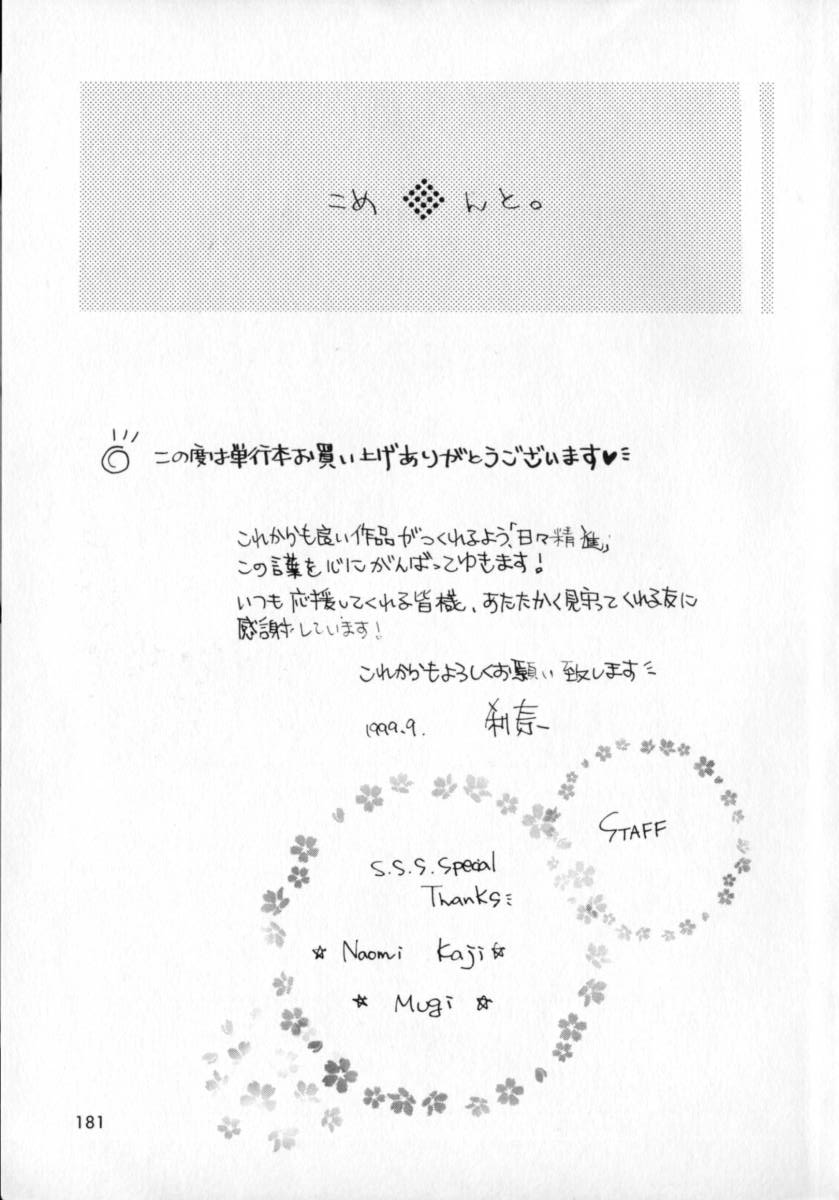 こめ んと。
この度は単行本お買い上げありがとうございます♥
これからも良い作品がつくれるよう、「日々精進」
この言葉を心にがんばってゆきます!
いつも応援してくれる皆様、あたたかく見守ってくれる友に
感謝しています!
これからもよろしくお願い致します
1999.9. 利奈
STAFF
S.S.S. Special
Thanks
☆ Naomi Kaji ☆
★ Mugi ☆
181